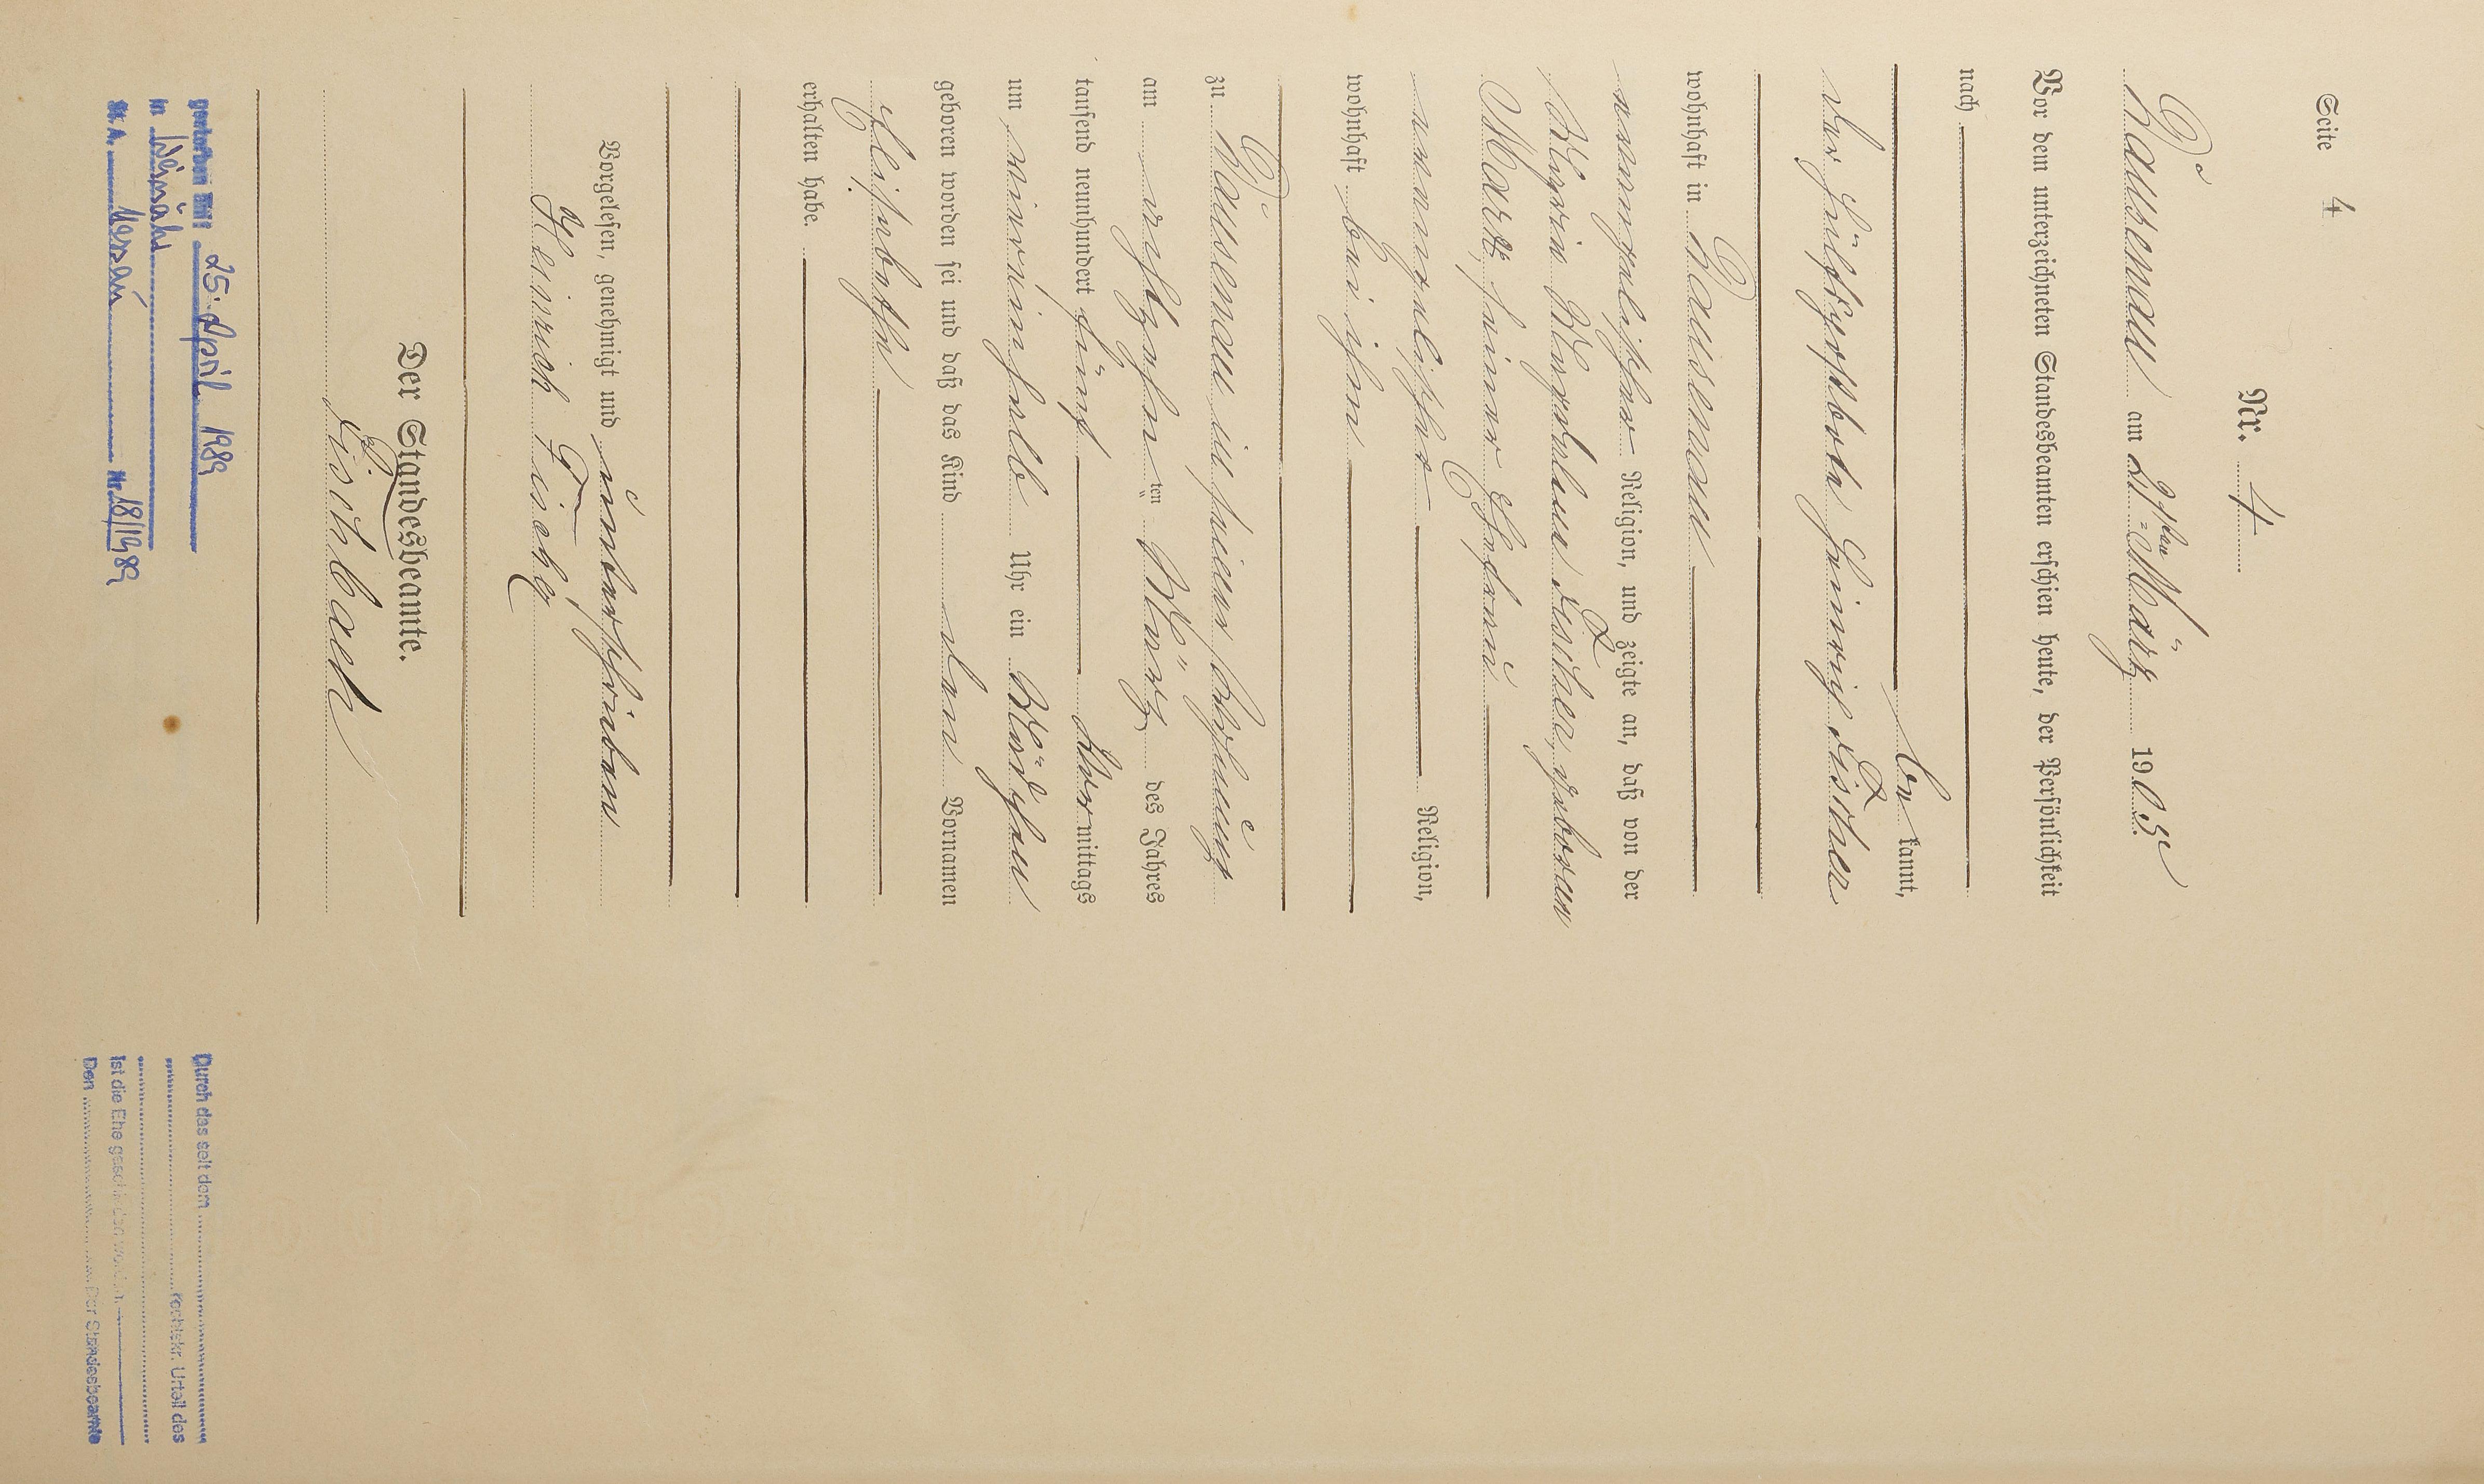 Seite 4
Nr. 4
Dausenau am 21ten März 1905
Vor dem unterzeichneten Standesbeamten erschien heute, der Persönlichkeit
nach
be kannt,
der Heinrich Fischer
wohnhaft in Dausenau
evangelischer Religion, und zeigte an, daß von der
Maria Magdalena Fischer, geborenen
seiner Ehefrau
evangelischer Religion,
wohnhaft bei ihm
zu Dausenau in seiner Behausung
am achtzehn ten März des Jahres
tausend neunhundert fünf Vor mittags
um Uhr ein Mädchen
geboren worden sei und daß das Kind den Vornamen
Elisabetha
erhalten habe.
Vorgelesen, genehmigt und unterschrieben
Heinrich Fischer
Der Standesbeamte.
Linkbach
gestorben am 25. April 1989
in
St. A. Nassau Nr. 18/1989
Durch das seit dem
rechtskr. Urteil des
ist die Ehe geschieden worden.
Den Der Standesbeamte